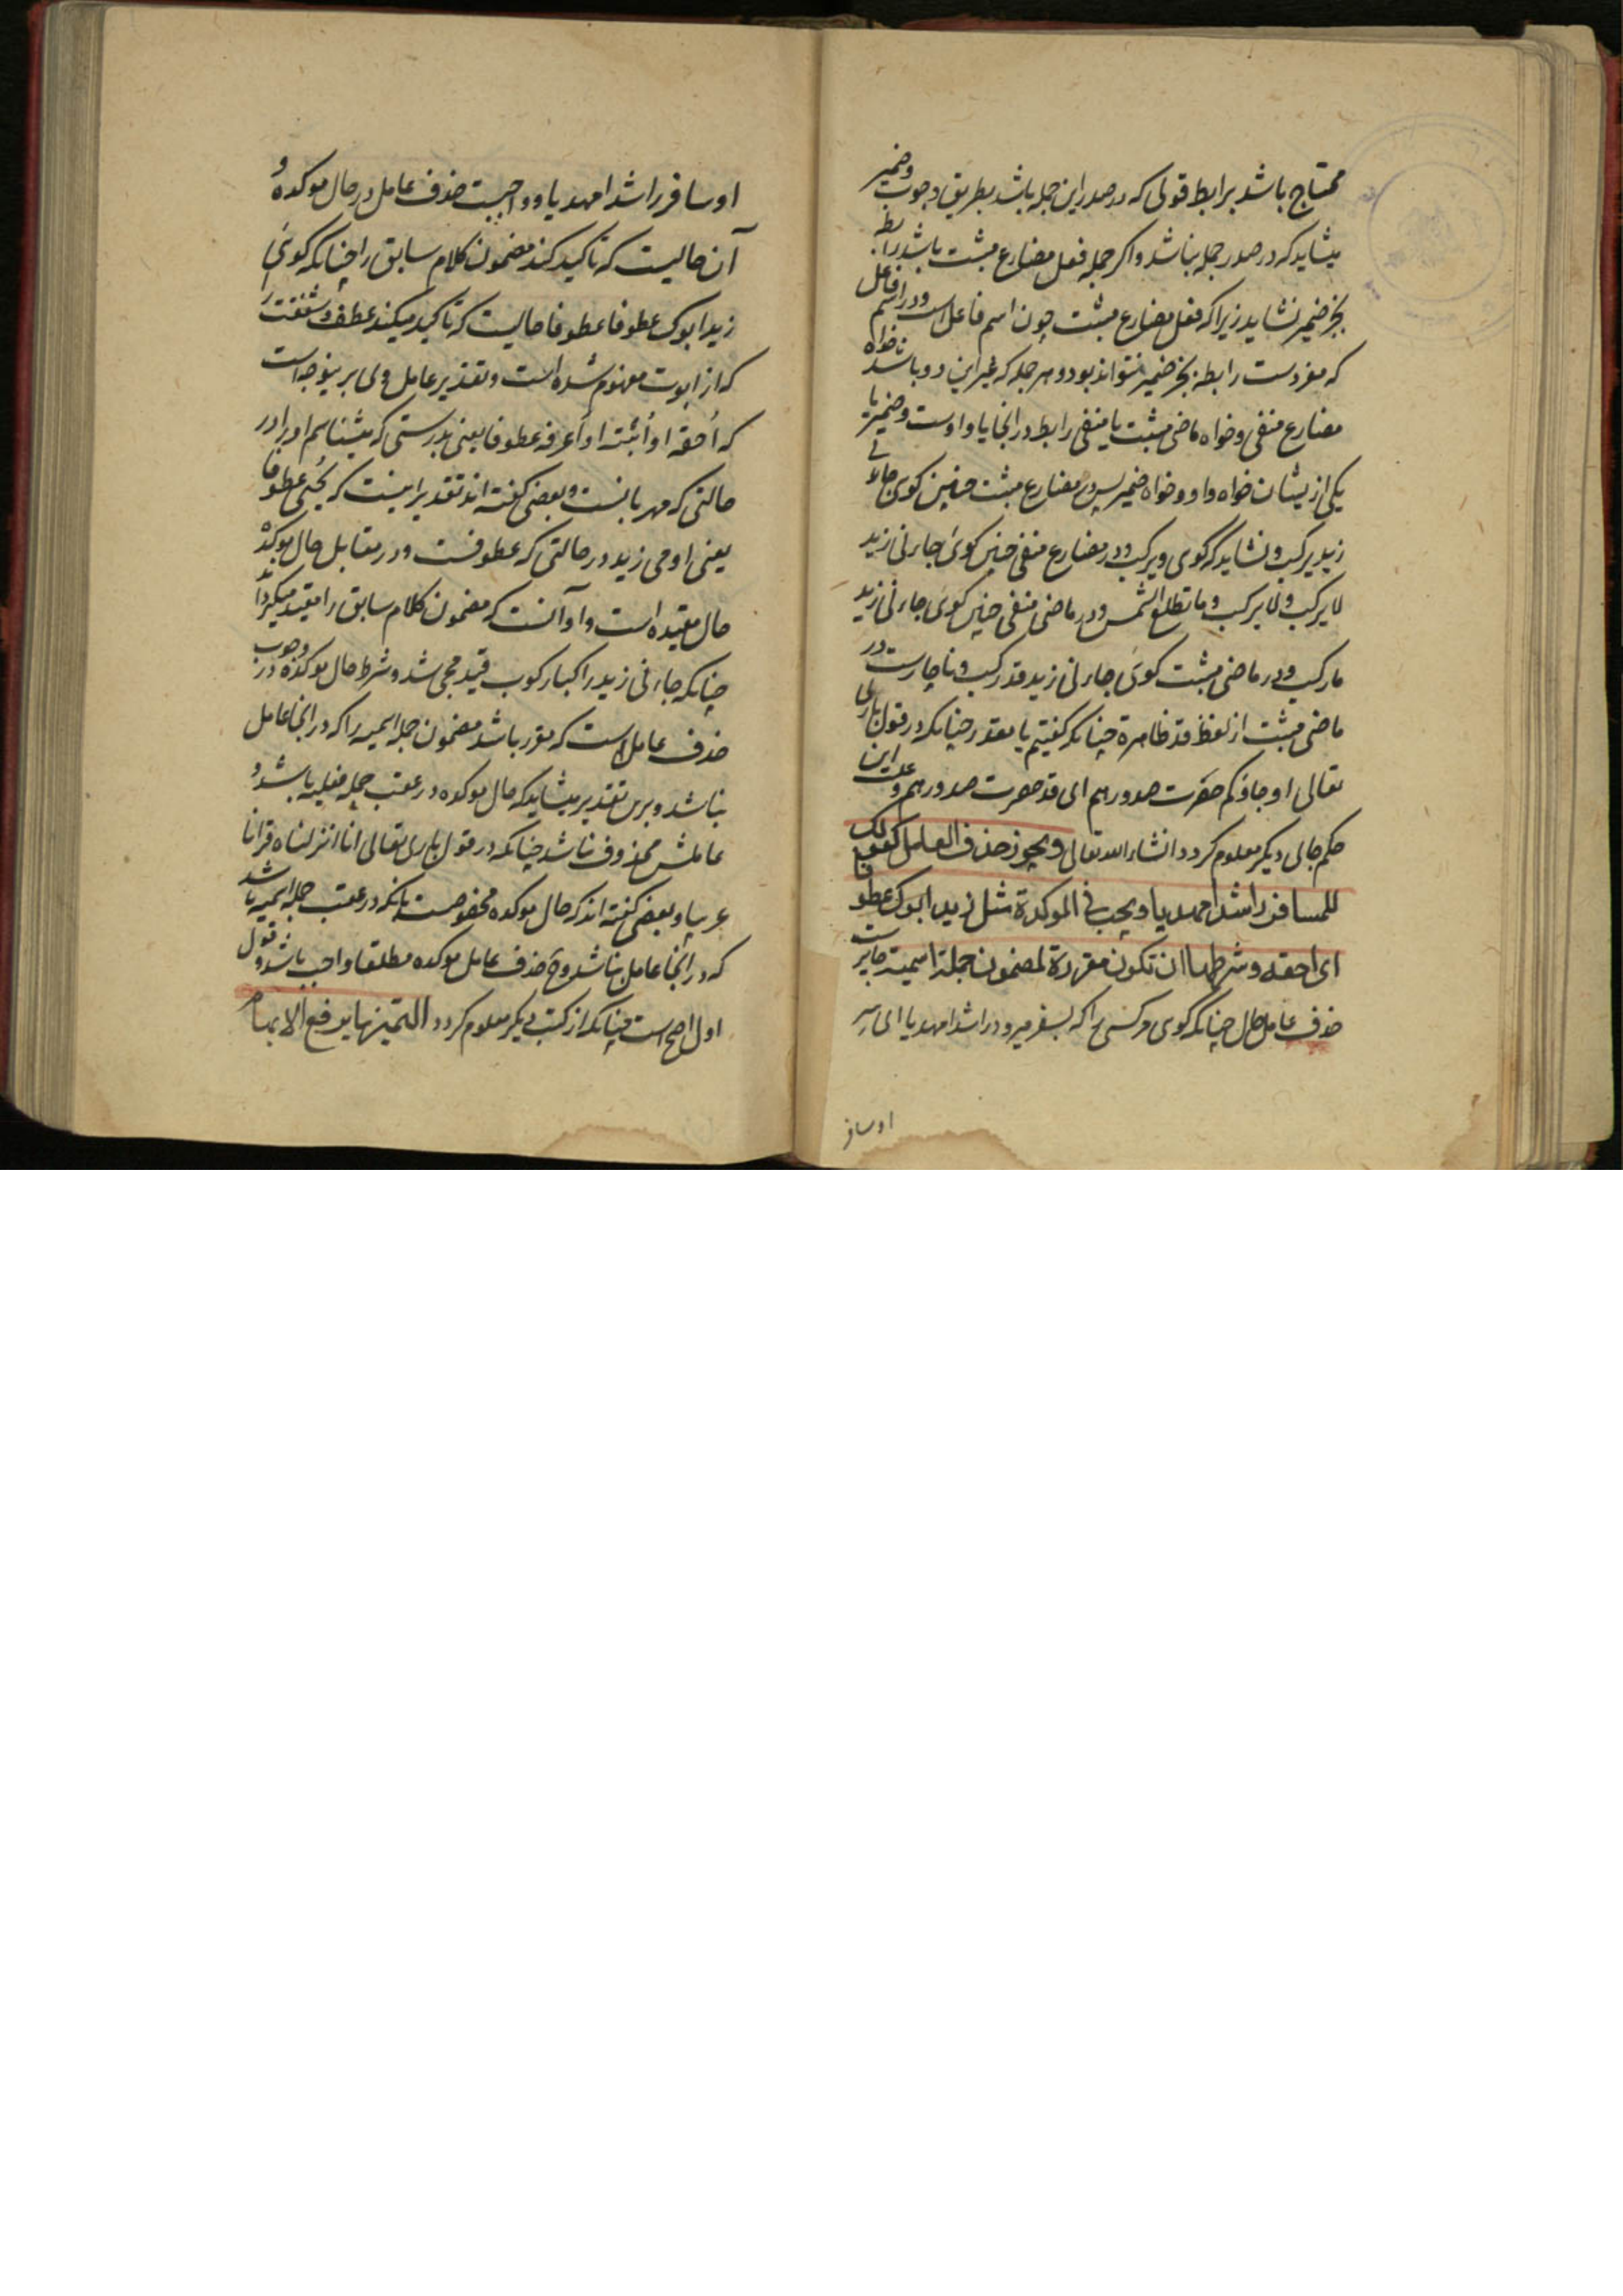 محتاج باشد برابط قوی که در صدر این جمله باشد بطریق وجوب وضمیر
میشاید که در صدر جمله نباشد واکر جمله فعل مضارع مثبت باشد رابطه
بجز ضمیر نشاید زیرا که فعل مضارع مثبت چون اسم فاعل است ودر اسم فاعل
که مفردست رابطه بجز ضمیر نتواند بود وهر جمله که غیر این دو باشد خواه
مضارع منفی وخواه ماضی مثبت یا منفی رابط در انجا یا واوست وضمیر یا
یکی از یشان خواه واو وخواه ضمیر پس در مضارع مثبت چنین کوی جاءنی
زید یرکب ونشاید که کوی ویرکب ودر مضارع منفی چنین کوی جاءنی زید
لا یرکب ولا یرکب وما تطلع الشمس ودر ماضی منفی چنین کوی جاءنی زید
ما رکب ودر ماضی مثبت کوی جاءنی زید قد رکب وناچارست در
ماضی مثبت از لفظ قد ظاهرة چنانکه کفتیم یا مقدر چنانکه در قول باری
تعالی او جاؤکم حصرت صدورهم ای قد حصرت صدورهم وعلت این
حکم جای دیکر معلوم کردد انشاء الله تعالی ویجوز حذف العامل کقولک
للمسافر راشدا مهدیا ویجب فی الموکدة مثل زید ابوک عطوفا
ای احقه وشرطها ان تکون مقررة لمضمون جملة اسمیة جایزست
حذف عامل حال چنانکه کوی مر کسی را که بسفر میرود راشدا مهدیا ای سر
اوسافر
اوسافر راشدا مهدیا وواجبست حذف عامل در حال موکده و
آن حالیست که تاکید کند مضمون کلام سابق را چنانکه کوی
زید ابوک عطوفا عطوفا حالیست که تاکید میکند عطف وشفقت را
که از ابوت مفهوم شده است وتقدیر عامل وی برینوجه است
که اُحقه او اُثبته او اَعرفه عطوفا یعنی بدرستی که میشناسم او را در
حالتی که مهربانست وبعضی کفته اند تقدیر اینست که یُحیی عطوفا
یعنی او می زید در حالتی که عطوفست ودر مقابل حال موکده
حال مقیده است واو آنست که مضمون کلام سابق را مقید میکرداند
چنانکه جاءنی زید راکبا رکوب قید مجی شد وشرط حال موکده در وجوب
حذف عامل آنست که مقرر باشد مضمون جمله اسمیه را که در انجا عامل
نباشد وبرین تقدیر میشاید که حال موکده در عقب جمله فعلیه باشد و
عاملش محذوف نباشد چنانکه در قول باری تعالی انا انزلناه قرانا
عربیا وبعضی کفته اند که حال موکده مخصوصست بانکه در عقب جمله اسمیه باشد
که در انجا عامل نباشد وح حذف عامل موکده مطلقا واجب باشد وقول
اول اصح است چنانکه از کتب دیکر معلوم کردد التمییز ما یرفع الابهام